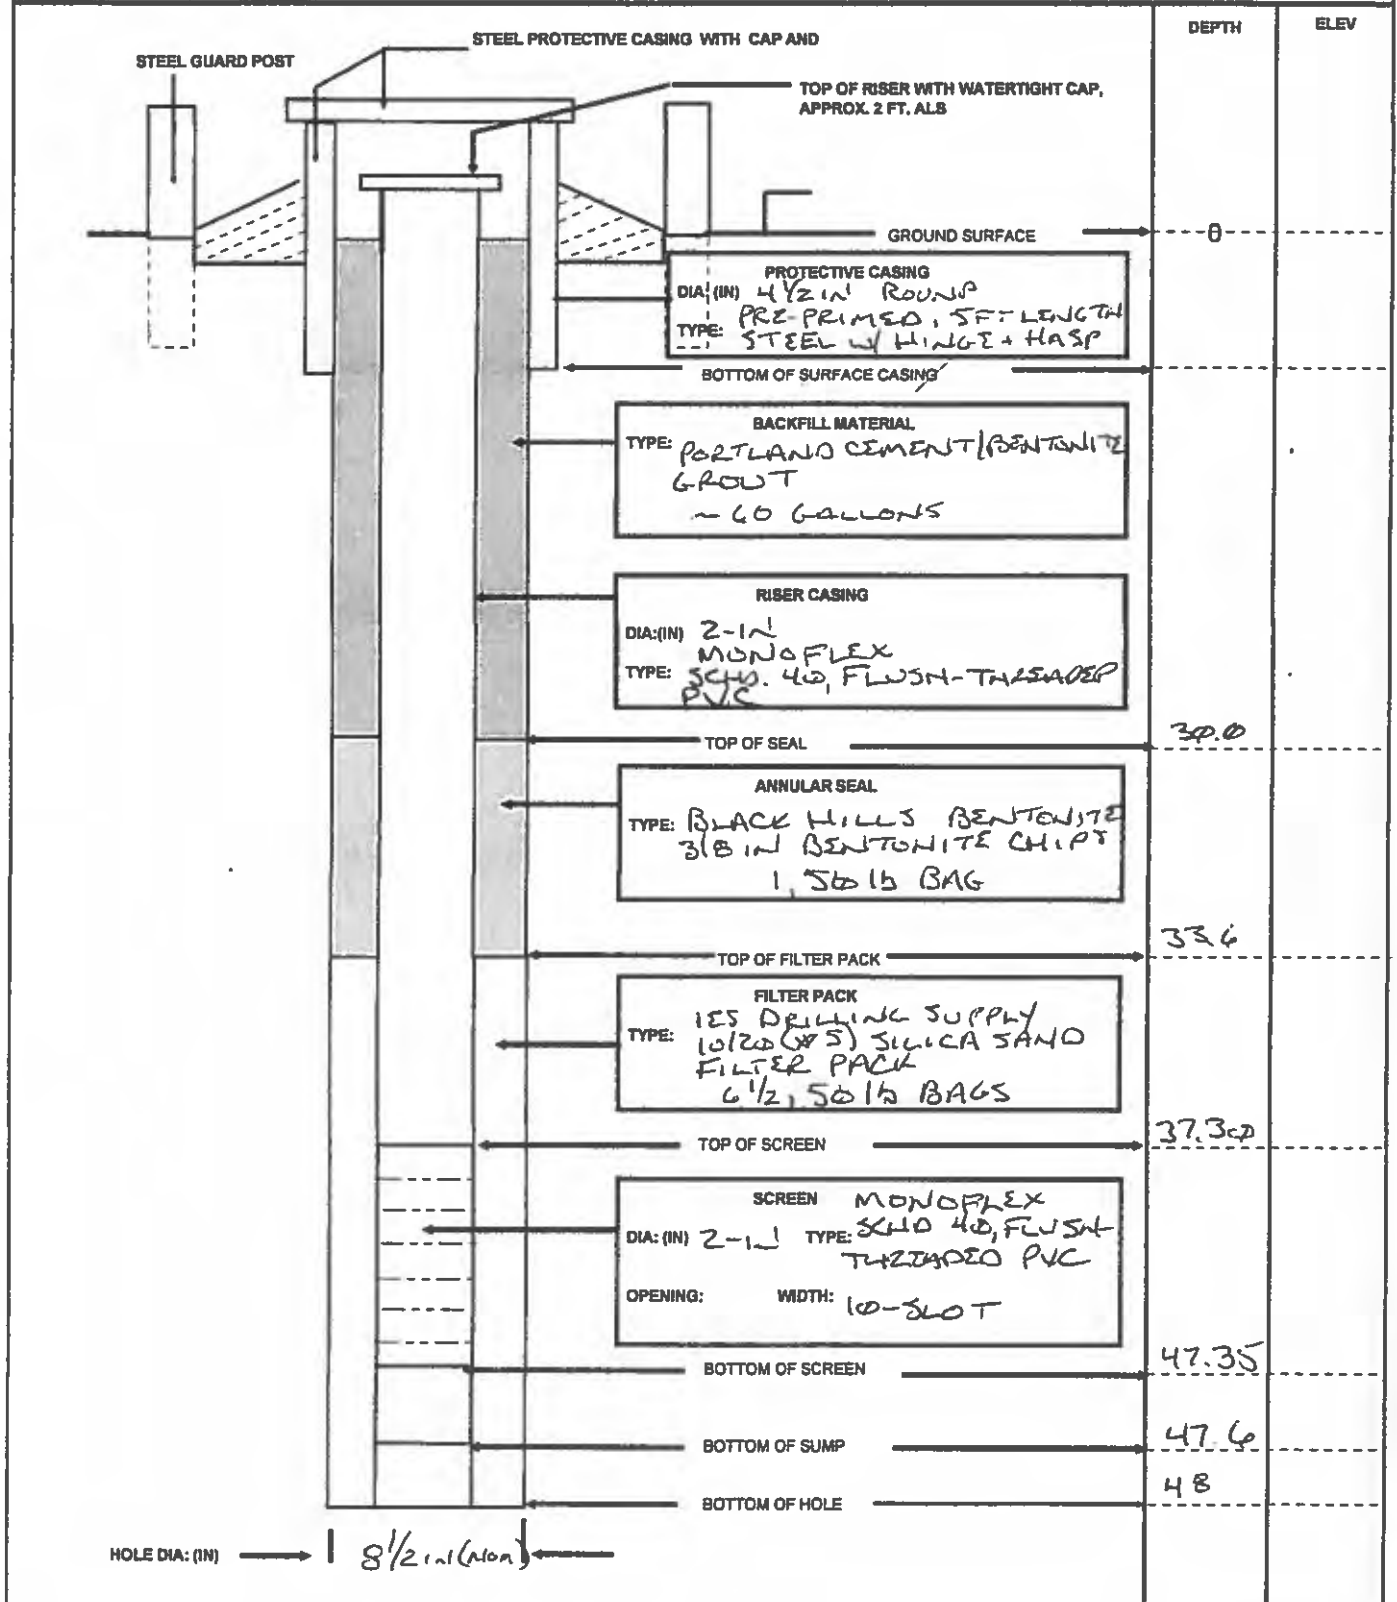 DEPTH
ELEV
STEEL PROTECTIVE CASING WITH CAP AND
STEEL GUARD POST
TOP OF RISER WITH WATERTIGHT CAP,
APPROX. 2 FT. ALS
GROUND SURFACE
0
PROTECTIVE CASING
DIA: (IN) 4 1/2 IN ROUND
TYPE: PRE-PRIMED, 5FT LENGTH
STEEL W/ HINGE + HASP
BOTTOM OF SURFACE CASING
BACKFILL MATERIAL
TYPE: PORTLAND CEMENT/BENTONITE
GROUT
~ 60 GALLONS
RISER CASING
DIA:(IN) 2-IN
MONOFLEX
TYPE: SCHD. 40, FLUSH-THREADED
PVC
TOP OF SEAL
30.0
ANNULAR SEAL
TYPE: BLACK HILLS BENTONITE
3/8 IN BENTONITE CHIPS
1, 50 lb BAG
TOP OF FILTER PACK
33.6
FILTER PACK
TYPE: IES DRILLING SUPPLY
10/20 (#5) SILICA SAND
FILTER PACK
6 1/2, 50 lb BAGS
TOP OF SCREEN
37.30
SCREEN MONOFLEX
DIA: (IN) 2-IN TYPE: SCHD 40, FLUSH-
THREADED PVC
OPENING: WIDTH: 10-SLOT
BOTTOM OF SCREEN
47.35
BOTTOM OF SUMP
47.6
BOTTOM OF HOLE
48
HOLE DIA: (IN) 8 1/2 in (nom)